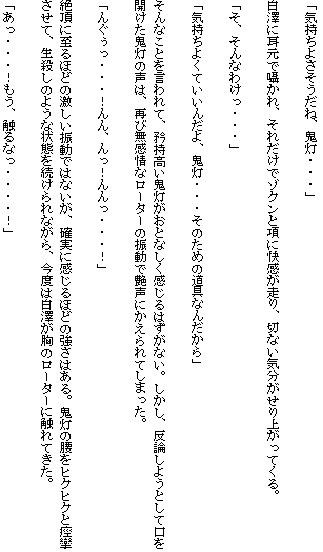 「気持ちよさそうだね、鬼灯・・・」
白澤に耳元で囁かれ、それだけでゾクンと項に快感が走り、切ない気分がせり上がってくる。
「そ、そんなわけっ・・・」
「気持ちよくていいんだよ、鬼灯・・・そのための道具なんだから」
そんなことを言われて、矜持高い鬼灯がおとなしく感じるはずがない。しかし、反論しようとして口を
開けた鬼灯の声は、再び無感情なローターの振動で艶声にかえられてしまった。
「んぐぅっ・・・!んん、んっ!んんっ・・・!」
絶頂に至るほどの激しい振動ではないが、確実に感じるほどの強さはある。鬼灯の腰をヒクヒクと痙攣
させて、生殺しのような状態を続けられながら、今度は白澤が胸のローターに触れてきた。
「あっ・・・!もう、触るなっ・・・・!」